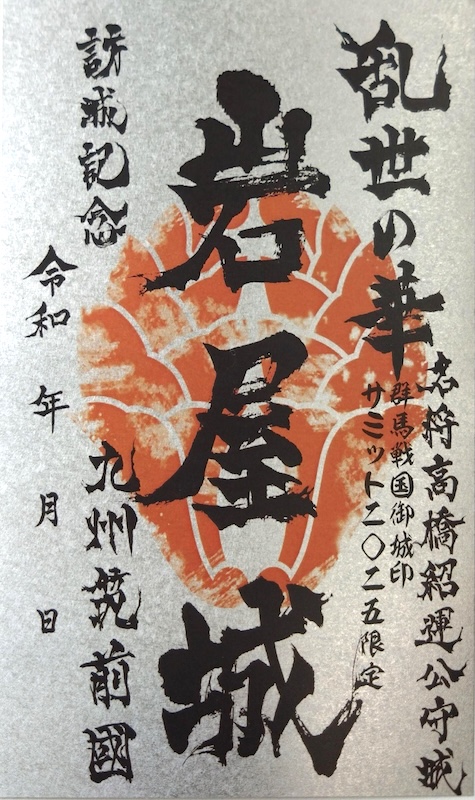 乱世の華
名将高橋紹運公守城
群馬戦国御城印
サミット二〇二五限定
岩屋城
九州筑前國
訪城記念
令和 年 月 日